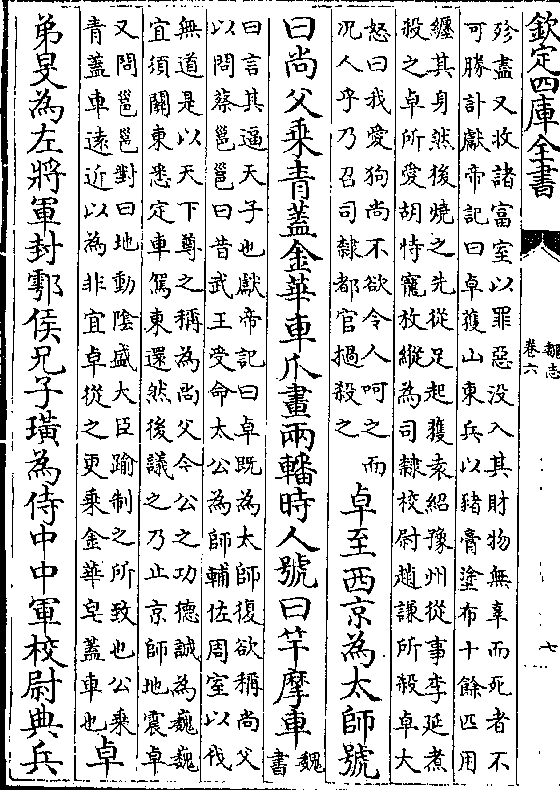 欽定四庫全書
魏志
卷六
七
殄盡又收諸富室以罪惡没入其財物無辜而死者不
可勝計獻帝記曰卓獲山東兵以豬膏塗布十餘匹用
纏其身然後燒之先從足起獲袁紹豫州從事李延煮
殺之卓所愛胡恃寵放縱為司隸校尉趙謙所殺卓大
怒曰我愛狗尚不欲令人呵之而
況人乎乃召司隸都官撾殺之
卓至西京為太師號
曰尚父乗青蓋金華車爪畫兩轓時人號曰竿摩車
魏
書
曰言其逼天子也獻帝記曰卓既為太師復欲稱尚父
以問蔡邕邕曰昔武王受命太公為師輔佐周室以伐
無道是以天下尊之稱為尚父今公之功德誠為巍巍
宜須關東悉定車駕東還然後議之乃止京師地震卓
又問邕邕對曰地動陰盛大臣踰制之所致也公乗
青蓋車遠近以為非宜卓從之更乗金華皂蓋車也
卓
弟旻為左將軍封鄠侯兄子璜為侍中中軍校尉典兵